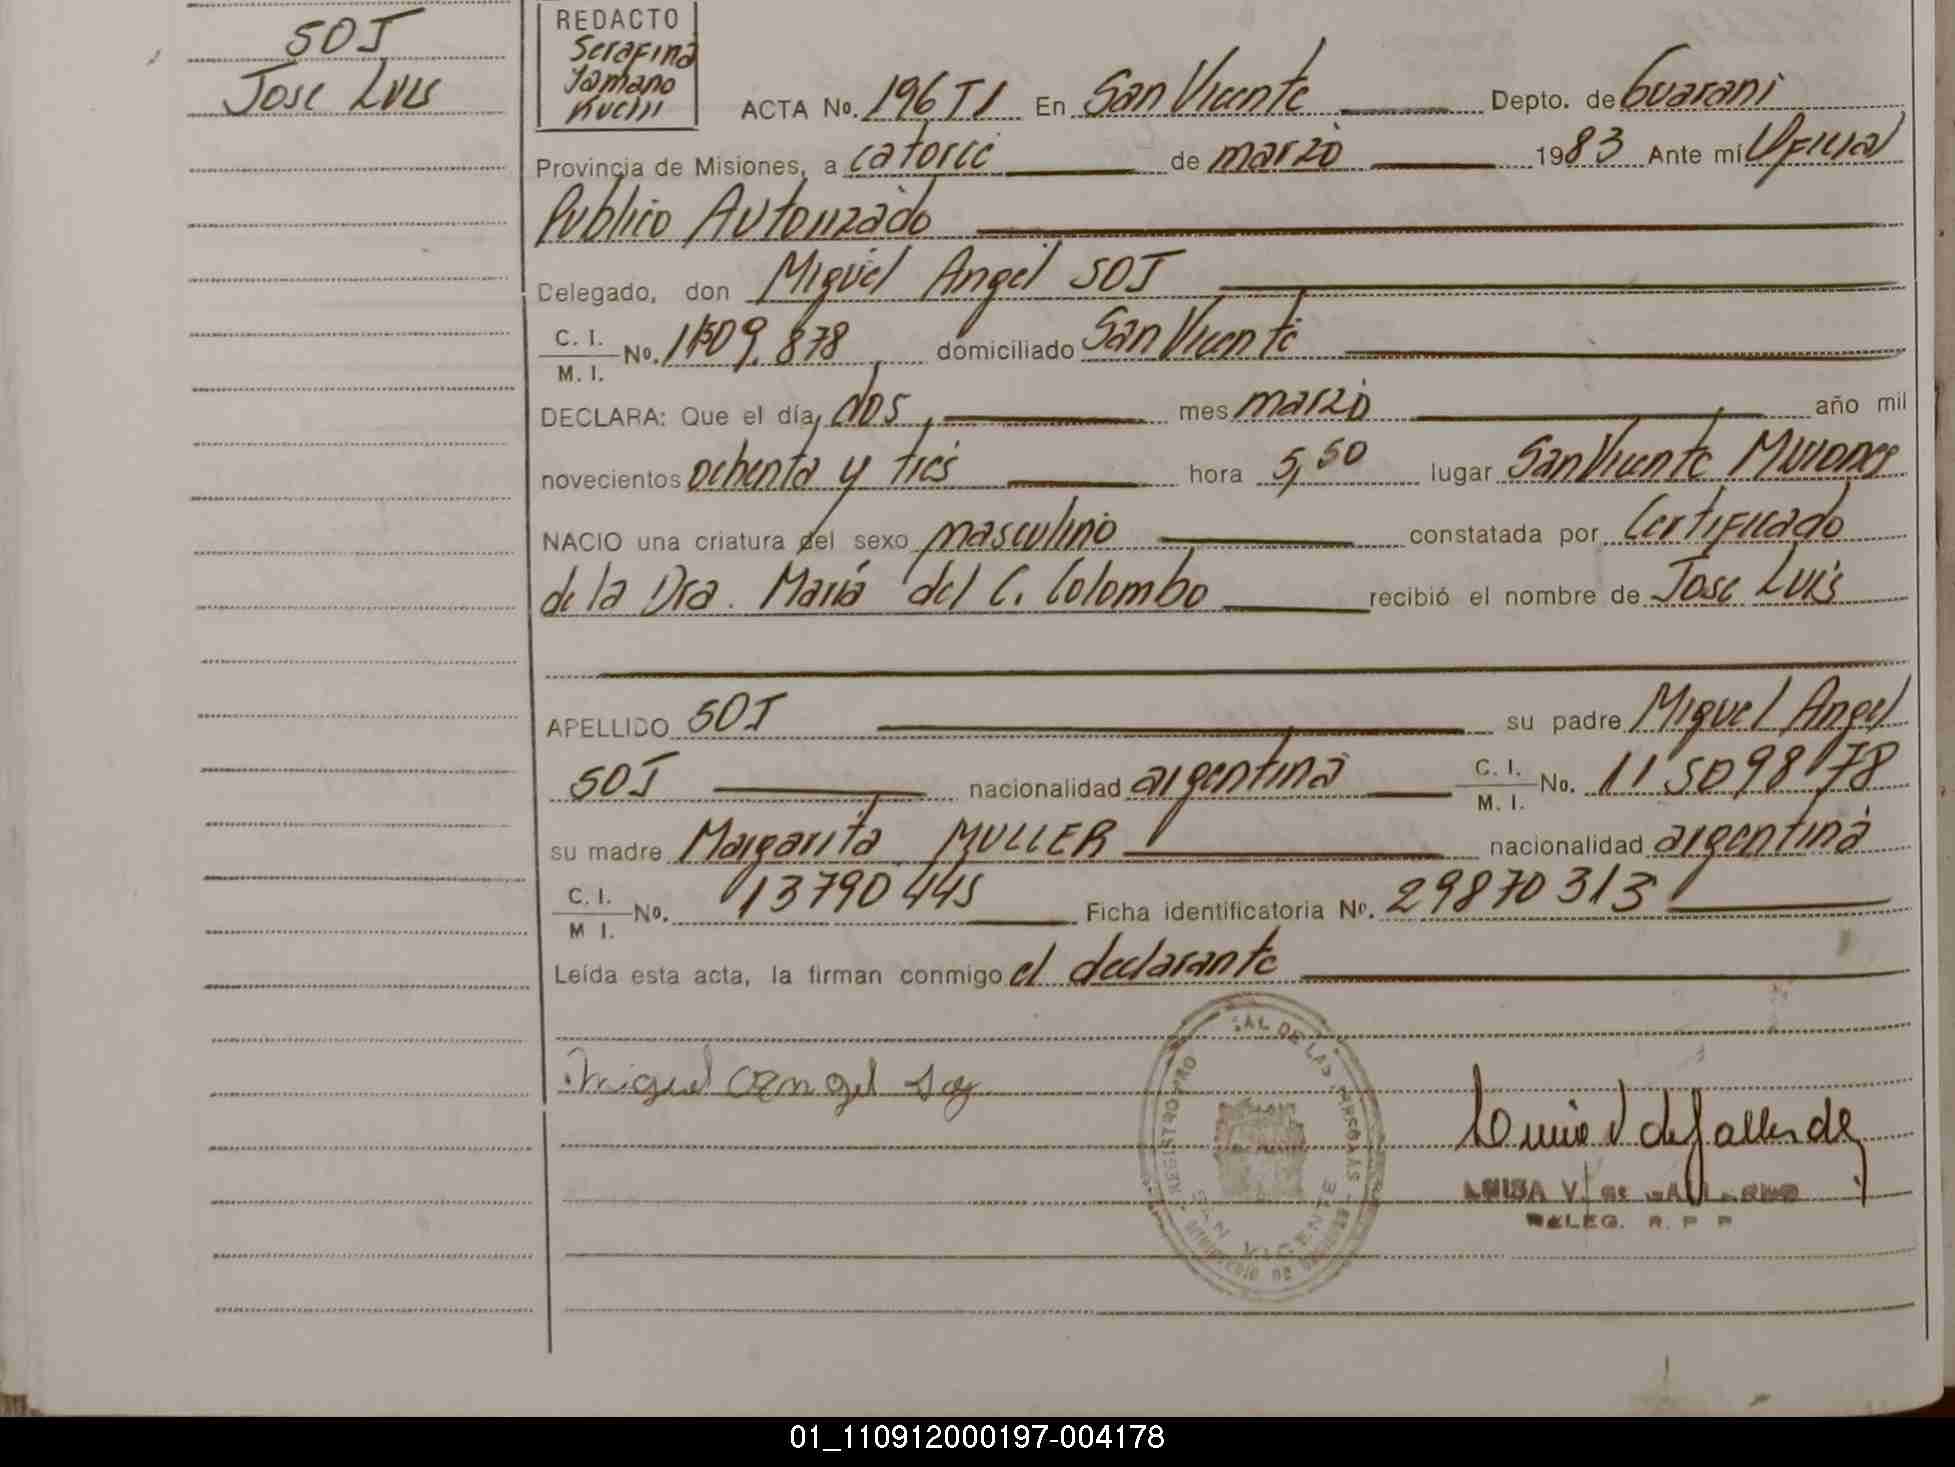 SOJ
Jose Luis
REDACTO
Serafina
Tamano
Kuchi
ACTA No. 196 T I En San Vicente Depto. de Guarani
Provincia de Misiones, a catorce de marzo 1983 Ante mí Oficial
Publico Autorizado
Delegado, don Miguel Angel SOJ
C. I. / M. I. No. 11509.878 domiciliado San Vicente
DECLARA: Que el día, dos mes marzo año mil
novecientos ochenta y tres hora 5,50 lugar San Vicente Misiones
NACIO una criatura del sexo masculino constatada por Certificado
de la Dra. María del C. Colombo recibió el nombre de Jose Luis
APELLIDO SOJ su padre Miguel Angel
SOJ nacionalidad argentina C. I. / M. I. No. 11509878
su madre Margarita MULLER nacionalidad argentina
C. I. / M I. No. 13790445 Ficha identificatoria No. 29870313
Leída esta acta, la firman conmigo el declarante
Miguel Angel Soj
REGISTRO PRO AL DE LAS PERSONAS
SAN VICENTE
MINISTERIO DE GOBIERNO
LUISA V. de
DELEG. R. P. P.
01_110912000197-004178